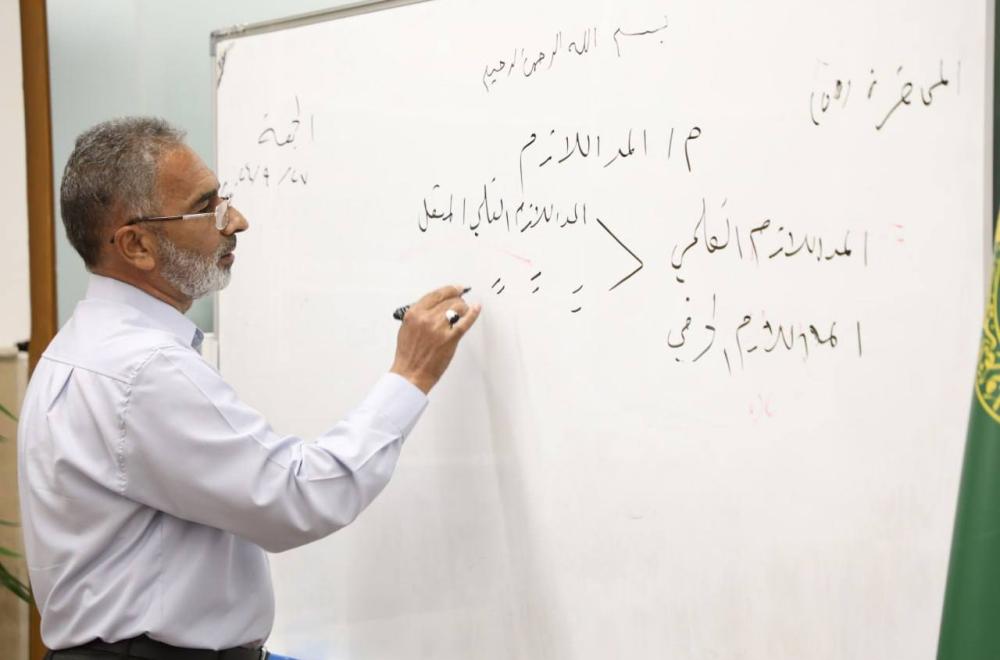 بسم الله الرحمن الرحيم
المحاضرة
الجمعة
م/ المد اللازم
المد اللازم الكلمي
المد اللازم الكلمي المثقل
المد اللازم الحرفي